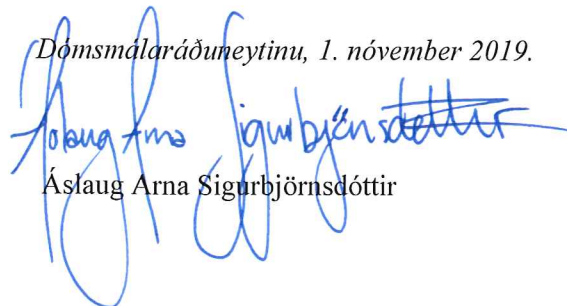 Dómsmálaráðuneytinu, 1. nóvember 2019.
Áslaug Arna Sigurbjörnsdóttir
Áslaug Arna Sigurbjörnsdóttir